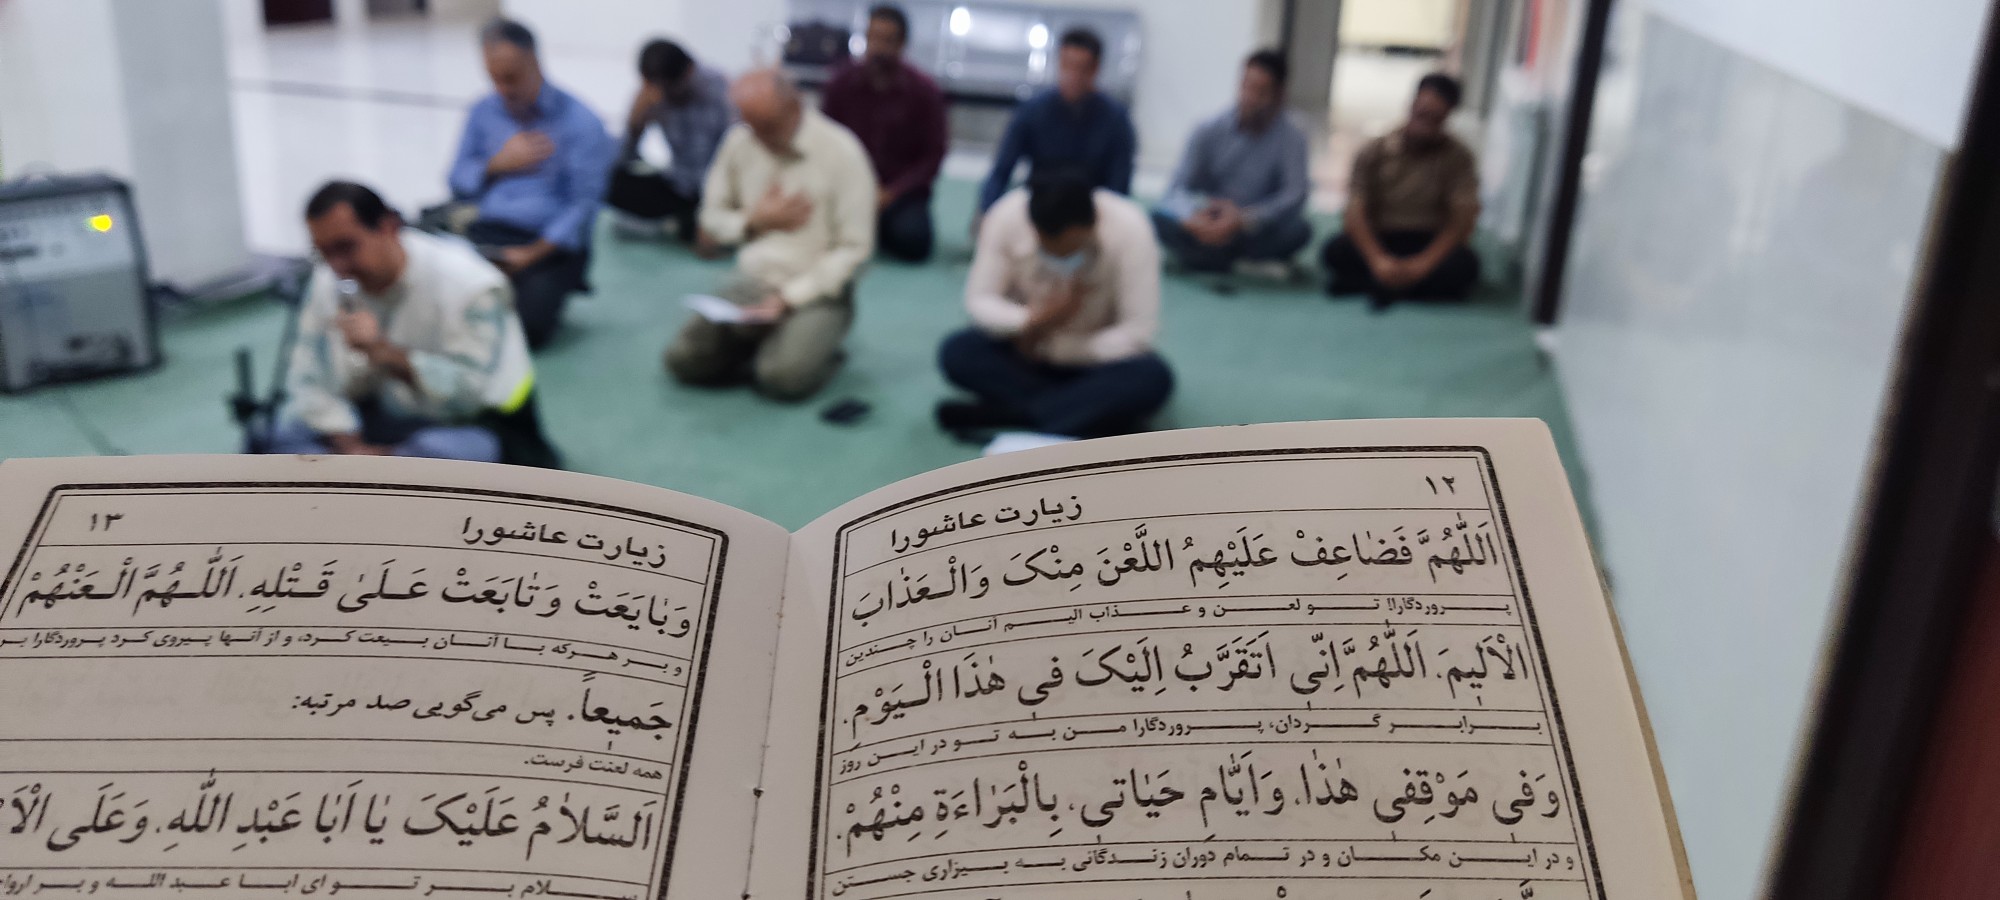 ۱۲
زیارت عاشورا
اَللّٰهُمَّ فَضٰاعِفْ عَلَیْهِمُ اللَّعْنَ مِنْکَ وَالْعَذٰابَ
پروردگارا! تو لعن و عذاب الیم آنان را چندین
الْاَلیمَ. اَللّٰهُمَّ اِنّی اَتَقَرَّبُ اِلَیْکَ فی هٰذَا الْیَوْمِ.
برابر گردان، پروردگارا من به تو در این روز
وَفی مَوْقِفی هٰذٰا. وَاَیّٰامِ حَیٰاتی. بِالْبَرٰاءَةِ مِنْهُمْ.
و در این مکان و در تمام دوران زندگانی به بیزاری جستن
۱۳
زیارت عاشورا
وَبٰایَعَتْ وَتٰابَعَتْ عَلیٰ قَتْلِهِ. اَللّٰهُمَّ الْعَنْهُمْ
و بر هرکه با آنان بیعت کرد، و از آنها پیروی کرد پروردگارا بر
جَمیعاً. پس می‌گویی صد مرتبه:
همه لعنت فرست.
اَلسَّلاٰمُ عَلَیْکَ یٰا اَبٰا عَبْدِ اللّٰهِ. وَعَلَی
سلام بر تو ای ابا عبد الله و بر